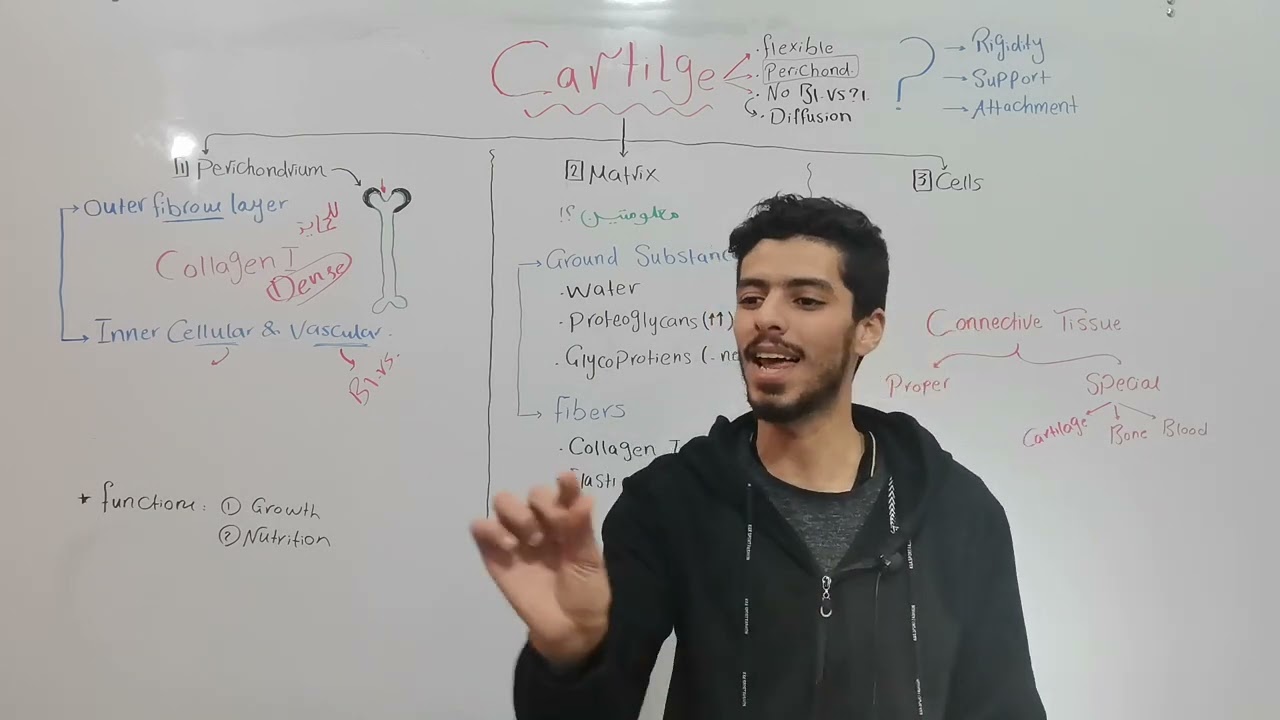 Cartilge
. flexible
. Perichond.
. No Bl.vs?!
. Diffusion
?
→ Rigidity
→ Support
→ Attachment
1 Perichondrium
Outer fibrous layer
Collagen I
Dense
Inner Cellular & Vascular.
Bl.vs.
* functions: ① Growth
② Nutrition
2 Matrix
معلومتين ؟!
Ground Substanc
. Water
. Proteoglycans (↑↑)
. GlycoProtiens (-ne
fibers
. Collagen
3 Cells
Connective Tissue
Proper
Special
Cartilage
Bone
Blood